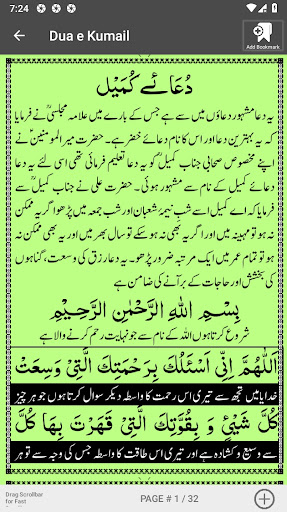 7:24
Dua e Kumail
Add Bookmark
دُعائے کُمَیل
یہ دعا مشہور دعاؤں میں سے ہے جس کے بارے میں علامہ مجلسیؒ نے فرمایا
کہ یہ بہترین دعا اور اس کا نام دعائے خضر ہے۔ حضرت میرالمومنین نے
اپنے مخصوص صحابی جناب کمیلؒ کو یہ دعا تعلیم فرمائی تھی اسی لئے یہ دعا
دعائے کمیل کے نام سے مشہور ہوئی۔ حضرت علی نے جناب کمیلؒ سے
فرمایا کہ اے کمیل اسے شب نیمۂ شعبان اور شب جمعہ میں پڑھو اگر یہ ممکن
نہ ہو تو مہینہ میں اور اگر یہ بھی نہ ہو سکے تو سال بھر میں اور یہ بھی ممکن نہ
ہو تو تمام عمر میں ایک مرتبہ ضرور پڑھو۔ یہ دعا رزق میں وسعت، گناہوں
کی بخشش اور حاجات کے برآنے کی ضامن ہے
بِسْمِ اللهِ الرَّحْمٰنِ الرَّحِيْمِ
شروع کرتا ہوں اللہ کے نام سے جو نہایت رحم کرنے والا ہے
اَللّٰهُمَّ اِنِّىْ اَسْئَلُكَ بِرَحْمَتِكَ الَّتِىْ وَسِعَتْ
خدایا میں تجھ سے تیری اس رحمت کا واسطہ دیکر سوال کرتا ہوں جو ہر چیز
كُلَّ شَيْئٍ وَ بِقُوَّتِكَ الَّتِىْ قَهَرْتَ بِهَا كُلَّ
سے وسیع و کشادہ ہے اور تیری اس طاقت کا واسطہ جس کی وجہ سے تو ہر
Drag Scrollbar
for Fast
PAGE # 1 / 32